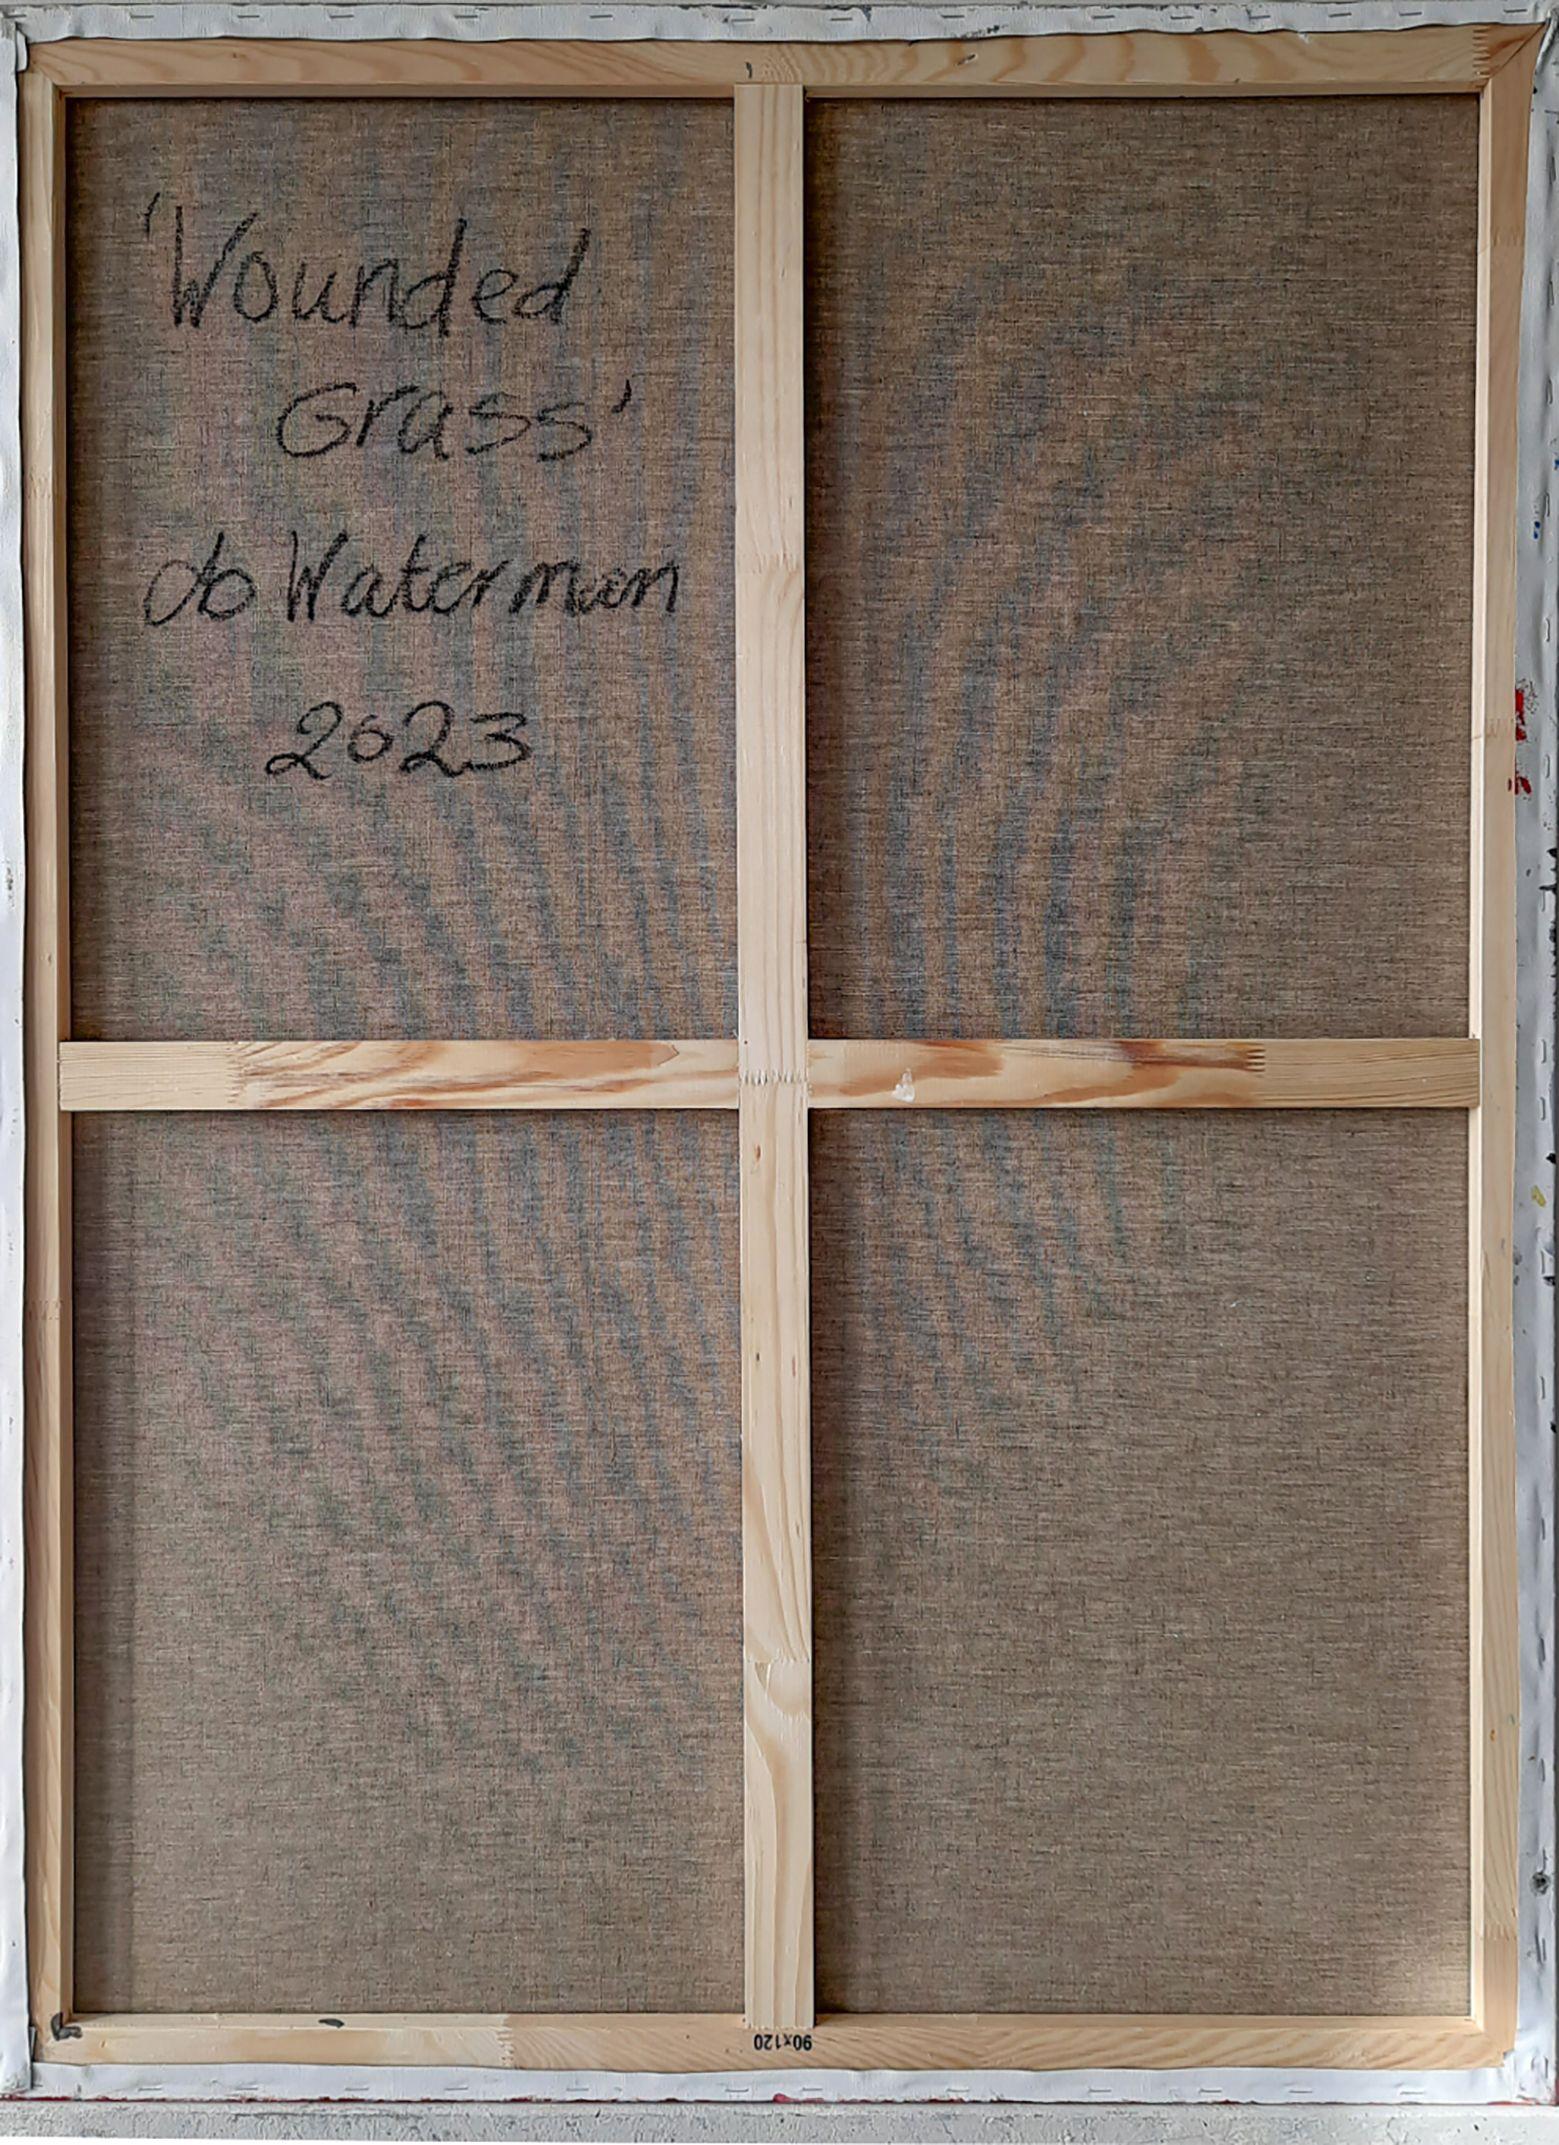 'Wounded
Grass'
do Waterman
2023
90x120